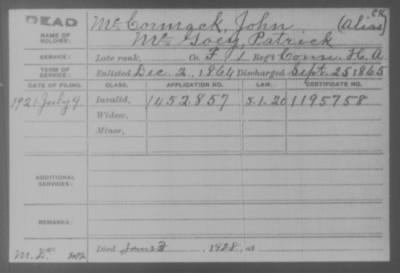 DEAD
NAME OF SOLDIER: McCormack, John (alias)
Patrick
SERVICE: Late rank, Co. F 1 Reg't Conn. H. A.
TERM OF SERVICE: Enlisted Dec. 2, 1864 Discharged Sept. 25 1865
DATE OF FILING. CLASS. APPLICATION NO. LAW. CERTIFICATE NO.
1921 July 9 Invalid, 1452857 5.1.20 1195758
Widow,
Minor,
ADDITIONAL SERVICES:
REMARKS:
Died 1928, at